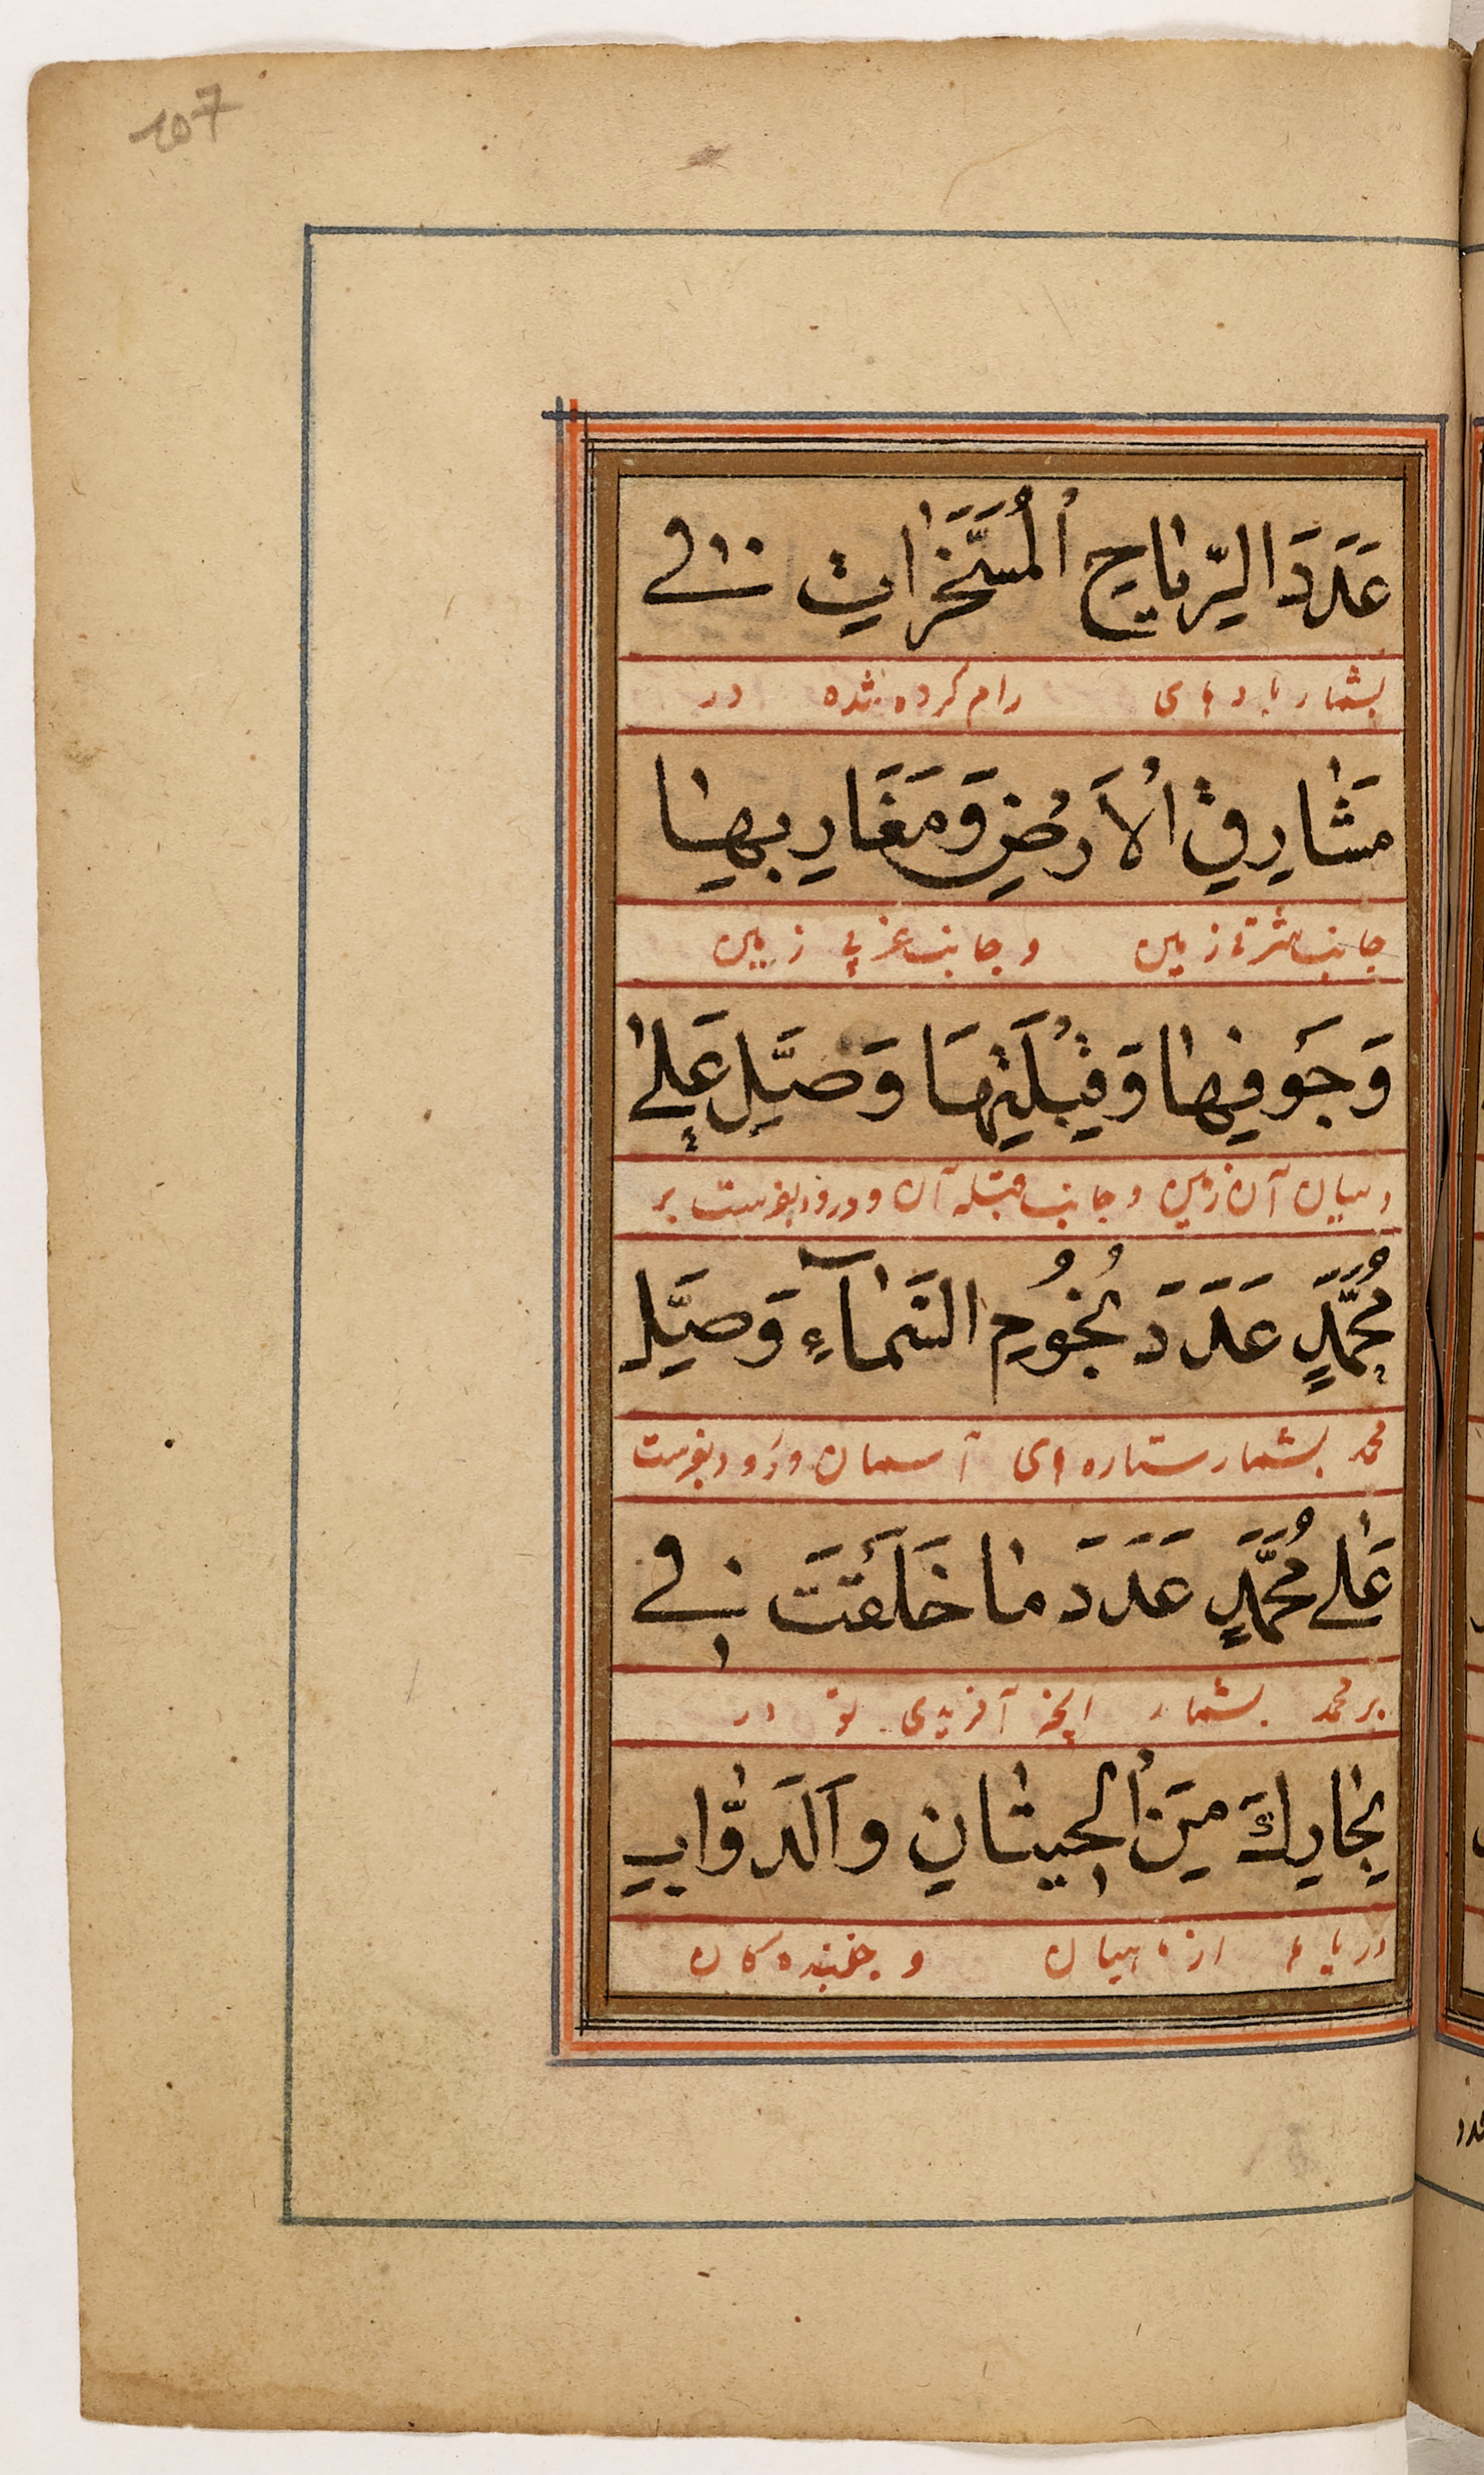 107
عَدَدَ الرِّيَاحِ الْمُسَخَّرَاتِ فِي
بشمار بادهای رام کرده شده در
مَشَارِقِ الْاَرْضِ وَمَغَارِبِهَا
جانب شرقی زمین و جانب غربی زمین
وَجَوْفِهَا وَقِبْلَتِهَا وَصَلِّ عَلٰی
و میان آن زمین و جانب قبله آن و درود بفرست بر
مُحَمَّدٍ عَدَدَ نُجُومِ السَّمَآءِ وَصَلِّ
محمد بشمار ستاره های آسمان و درود بفرست
عَلٰی مُحَمَّدٍ عَدَدَ مَا خَلَقْتَ فِي
بر محمد بشمار آنچه آفریدی تو در
بِحَارِكَ مِنَ الْحِيتَانِ وَالدَّوَّابِ
دریاها از ماهیان و جنبنده کان